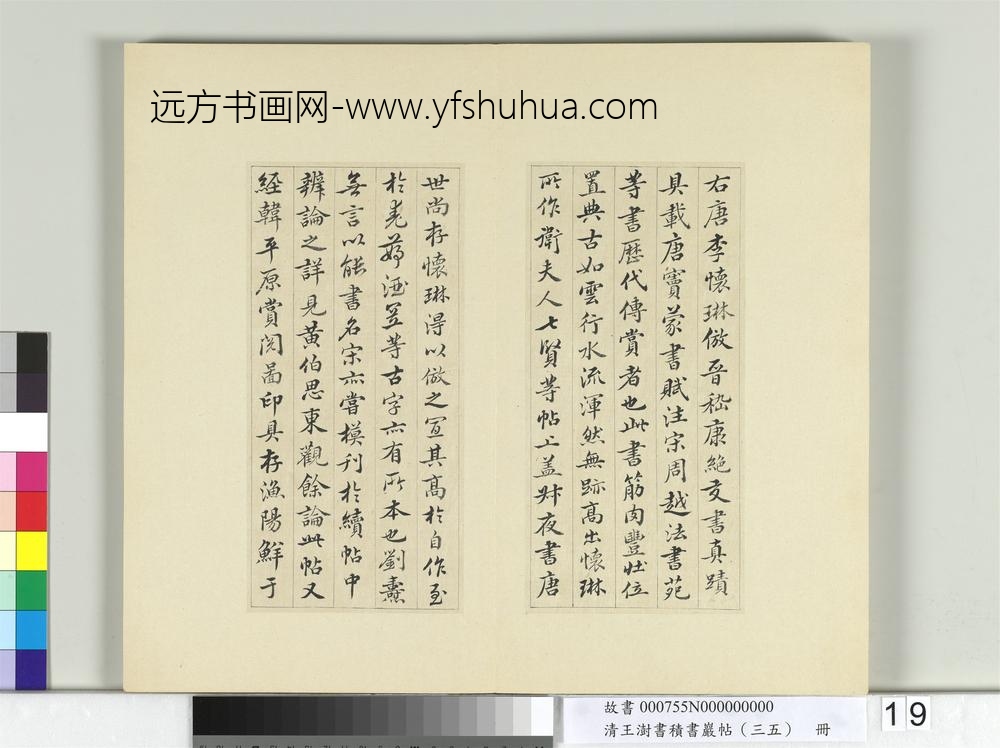 远方书画网-www.yfshuhua.com
右唐李懷琳倣晉嵇康絶交書真蹟
具載唐竇蒙書賦注宋周越法書苑
等書歷代傳賞者也此書筋肉豐壯位
置典古如雲行水流渾然無跡高出懷琳
所作衛夫人七賢等帖上蓋叔夜書唐
世尚存懷琳得以倣之宜其高於自作至
於 等古字亦有所本也劉燾
無言以能書名宋亦嘗模刊於續帖中
辨論之詳見黃伯思東觀餘論此帖又
經韓平原賞閱啚印具存漁陽鮮于
故書 000755N000000000
清王澍書積書巖帖（三五） 冊
19